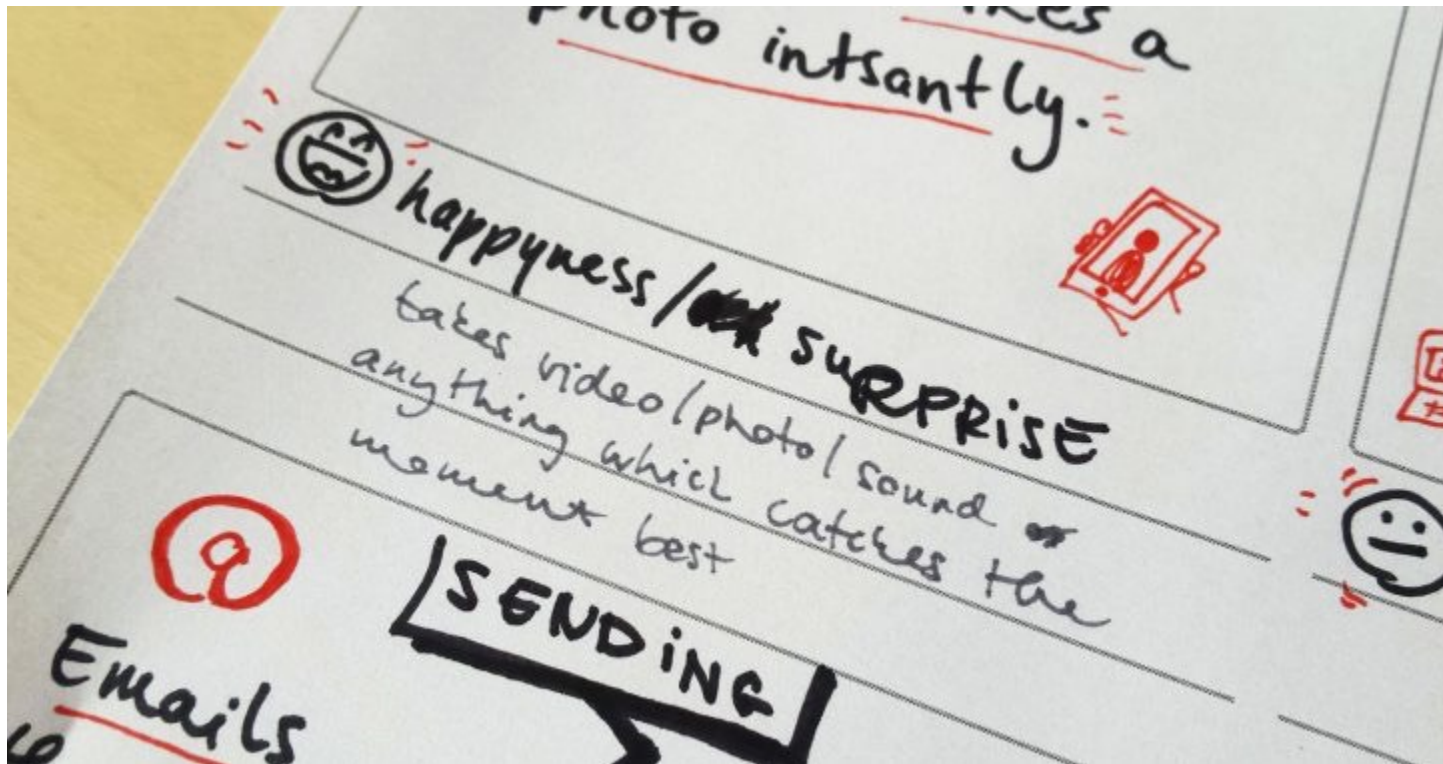 a
photo intsantly.
happyness / SURPRISE
takes video/photo/sound or
anything which catches the
moment best
SENDING
@
Emails